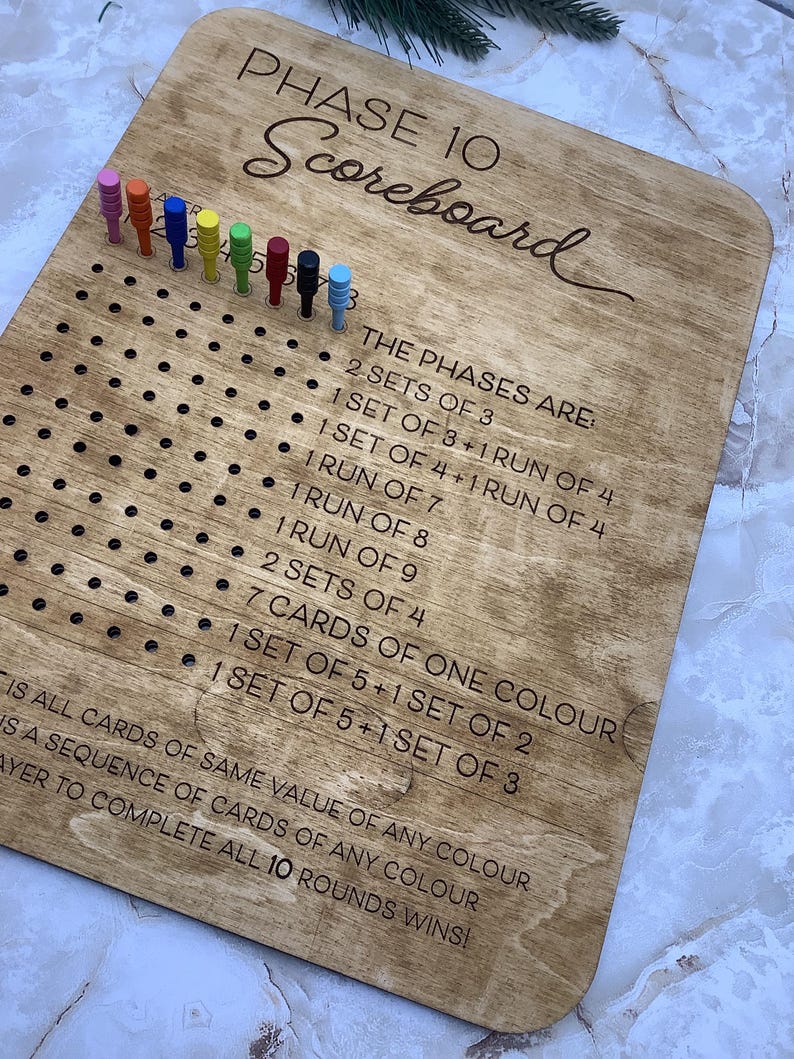 PHASE 10
Scoreboard
THE PHASES ARE:
2 SETS OF 3
1 SET OF 3 + 1 RUN OF 4
1 SET OF 4 + 1 RUN OF 4
1 RUN OF 7
1 RUN OF 8
1 RUN OF 9
2 SETS OF 4
7 CARDS OF ONE COLOUR
1 SET OF 5 + 1 SET OF 2
1 SET OF 5 + 1 SET OF 3
IS ALL CARDS OF SAME VALUE OF ANY COLOUR
IS A SEQUENCE OF CARDS OF ANY COLOUR
TO COMPLETE ALL 10 ROUNDS WINS!